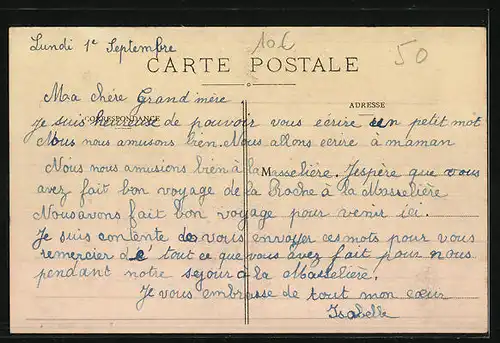 Lundi 1e Septembre
10€
50
CARTE POSTALE
Ma chère Grand'mère
CORRESPONDANCE
ADRESSE
Je suis heureuse de pouvoir vous écrire un petit mot
Nous nous amusons bien. Nous allons écrire à maman
Nous nous amusions bien à la Masselière. J'espère que vous
avez fait bon voyage de la Roche à la Masselière
Nous avons fait bon voyage pour venir ici.
Je suis contente de vous envoyer ces mots pour vous
remercier de tout ce que vous avez fait pour nous
pendant notre sejour à la Masselière.
Je vous embrasse de tout mon cœur
Isabelle